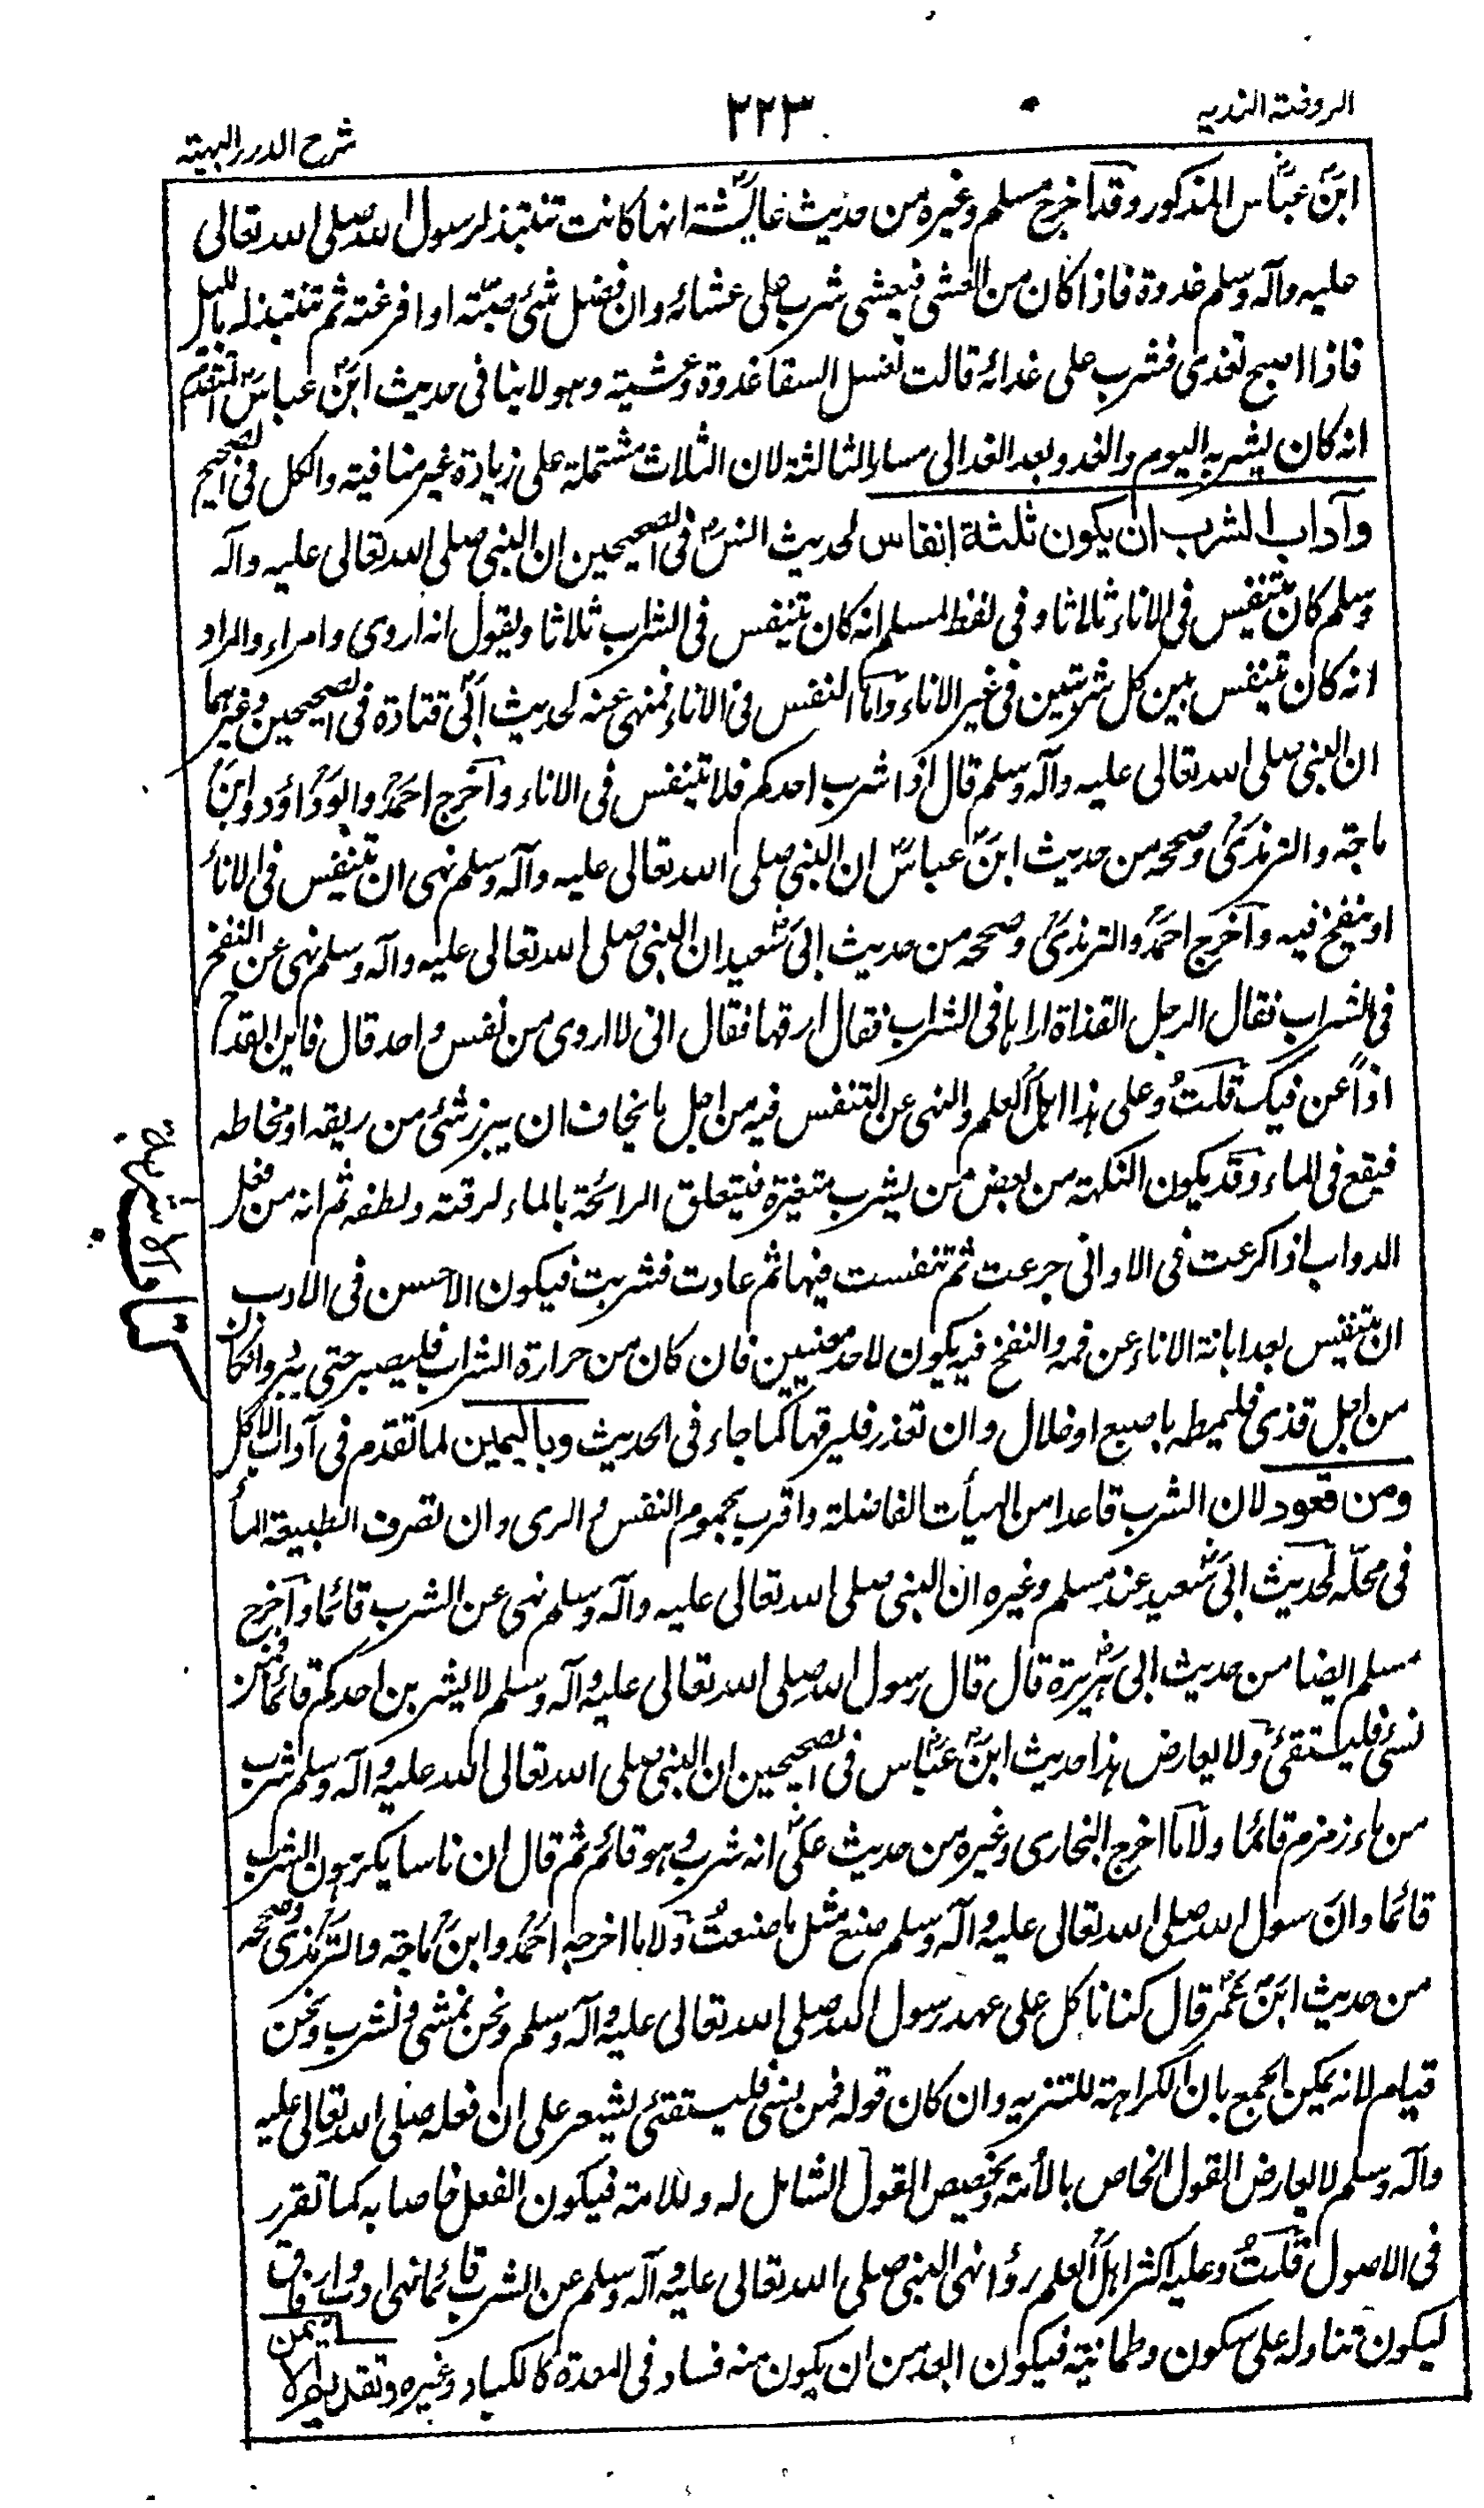 الروضة الندية
٢٢٣
شرح الدرر البهية
ابن عباس المذكور وقد اخرج مسلم وغيره من حديث عايشة انها كانت تنتبذ لرسول الله صلى الله تعالى
عليه وآله وسلم غدوة فاذا كان من العشى فيعشى شرب على عشائه وان فضل شئ صبته او افرغته ثم تنتبذ له بالليل
فاذا اصبح تغدى فشرب على غدائه قالت نغسل السقا غدوة وعشية وهو لا ينافى حديث ابن عباس المتقدم
انه كان يشربه اليوم والغد وبعد الغد الى مساء الثالثة لان الثلاث مشتملة على زيادة غير منافية والكل فى الصحيح
وآداب الشرب ان يكون ثلثة انفاس لحديث انس فى الصحيحين ان النبى صلى الله تعالى عليه وآله
وسلم كان يتنفس فى الاناء ثلاثا وفى لفظ لمسلم انه كان يتنفس فى الشراب ثلاثا ويقول انه اروى وامراء والمراد
انه كان يتنفس بين كل شربتين فى غير الاناء واما التنفس فى الاناء فمنهى عنه لحديث ابى قتادة فى الصحيحين وغيرهما
ان النبى صلى الله تعالى عليه وآله وسلم قال اذا شرب احدكم فلا يتنفس فى الاناء واخرج احمد وابو داؤد وابن
ماجة والترمذى وصححه من حديث ابن عباس ان النبى صلى الله تعالى عليه وآله وسلم نهى ان يتنفس فى الاناء
او ينفخ فيه واخرج احمد والترمذى وصححه من حديث ابى سعيد ان النبى صلى الله تعالى عليه وآله وسلم نهى عن النفخ
فى الشراب فقال الرجل القذاة اراها فى الشراب فقال ارقها فقال انى لا اروى من نفس واحد قال فابن القدح
اذًا عن فيك قلت وعلى هذا اهل العلم والنهى عن التنفس فيه من اجل ما يخاف ان يبرز شئ من ريقه او مخاطه
فيقع فى الماء وقد يكون النكهة من بعض من يشرب متغيرة فيتعلق الرائحة بالماء لرقته ولطفه ثم انه من فعل
الدواب اذا كرعت فى الاوانى جرعت ثم تنفست فيها ثم عادت فشربت فيكون الاحسن فى الادب
ان يتنفس بعد ابانة الاناء عن فمه والنفخ فيه يكون لاحد معنيين فان كان من حرارة الشراب فليصبر حتى يبرد وان كان
من اجل قذى فليمطه باصبع او خلال وان تعذر فليرقها كما جاء فى الحديث وباليمين لما تقدم فى آداب الاكل
ومن قعود لان الشرب قاعدا من الهيأت الفاضلة واقرب لجموم النفس والرى وان تصرف الطبيعة الماء
فى محله لحديث ابى سعيد عند مسلم وغيره ان النبى صلى الله تعالى عليه وآله وسلم نهى عن الشرب قائما واخرج
مسلم ايضا من حديث ابى هريرة قال قال رسول الله صلى الله تعالى عليه وآله وسلم لا يشربن احدكم قائما فمن
نسى فليستقئ ولا يعارض هذا حديث ابن عباس فى الصحيحين ان النبى صلى الله تعالى الله عليه وآله وسلم شرب
من ماء زمزم قائما ولا ما اخرج البخارى وغيره من حديث على انه شرب وهو قائم ثم قال ان ناسا يكرهون الشرب
قائما وان رسول الله صلى الله تعالى عليه وآله وسلم صنع مثل ما صنعت ولا ما اخرجه احمد وابن ماجة والترمذى وصححه
من حديث ابن عمر قال كنا ناكل على عهد رسول الله صلى الله تعالى عليه وآله وسلم ونحن نمشى ونشرب ونحن
قيام لانه يمكن الجمع بان الكراهة للتنزيه وان كان قوله فمن نسى فليستقئ يشعر على ان فعله صلى الله تعالى عليه
وآله وسلم لا يعارض القول الخاص بالأمة وتخصيص القول الشامل له وللامة فيكون الفعل خاصا به كما تقرر
فى الاصول قلت وعليه اكثر اهل العلم رؤا نهى النبى صلى الله تعالى عليه وآله وسلم عن الشرب قائما نهى ادب وارفاق
ليكون تناوله على سكون وطمانية فيكون ابعد من ان يكون منه فساد فى المعدة كالكباد وغيره وتقديم الايمن